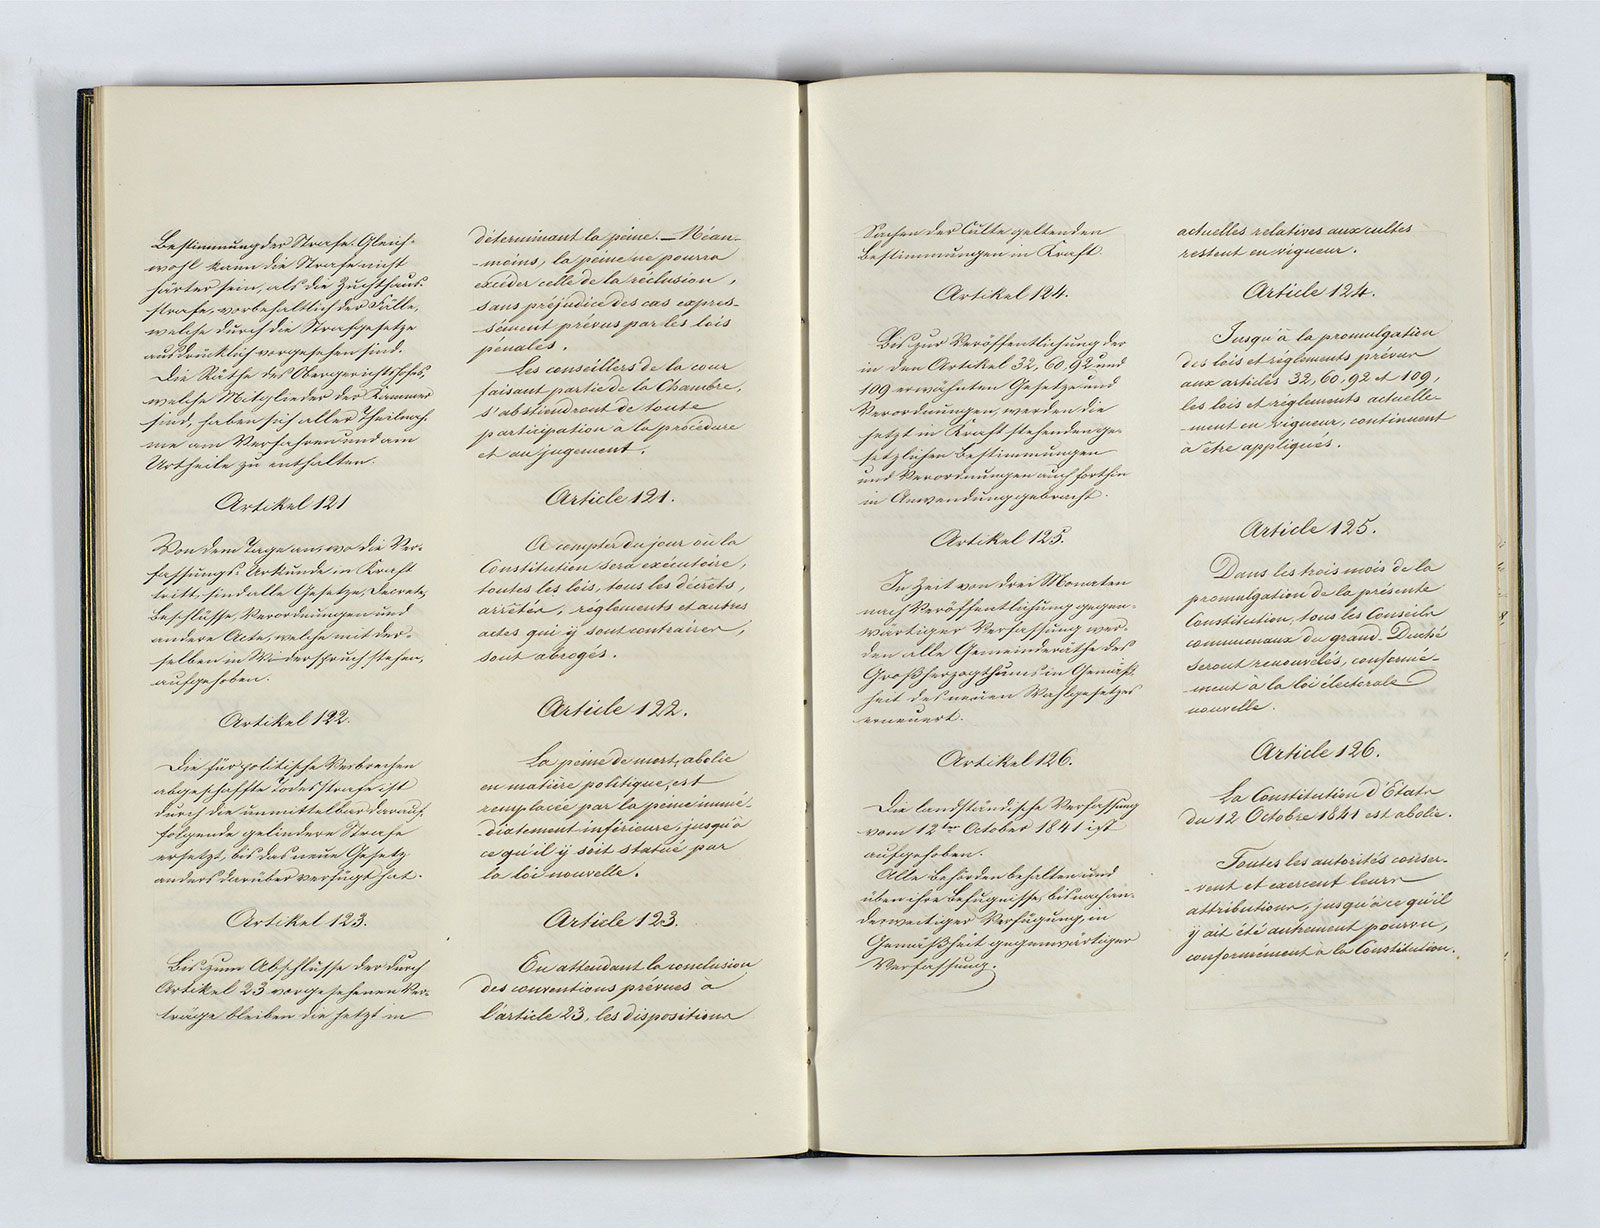 Bestimmung der Strafe. Gleich-
wohl kann die Strafe nicht
härter sein, als die Zuchthaus-
strafe, vorbehaltlich der Fälle,
welche durch die Strafgesetze
ausdrücklich vorgesehen sind.
Die Räthe des Obergerichtshofes,
welche Mitglieder der Kammer
sind, haben sich aller Theilnah-
me am Verfahren und am
Urtheile zu enthalten.
Artikel 121
Von dem Tage an, wo die Ver-
fassungs-Urkunde in Kraft
tritt, sind alle Gesetze, Decrete,
Beschlüsse, Verordnungen und
andere Acte, welche mit der-
selben in Widerspruch stehen,
aufgehoben.
Artikel 122.
Die für politische Verbrechen
abgeschaffte Todesstrafe ist
durch die unmittelbar darauf
folgende gelindere Strafe
ersetzt, bis das neue Gesetz
anders darüber verfügt hat.
Artikel 123.
Bis zum Abschlusse der durch
Artikel 23 vorgesehenen Ver-
träge bleiben die jetzt in
déterminant la peine. — Néan-
-moins, la peine ne pourra
excéder celle de la réclusion,
sans préjudice des cas expres-
sément prévus par les lois
pénales.
Les conseillers de la cour
faisant partie de la Chambre,
s'abstiendront de toute
participation à la procédure
et au jugement.
Article 121.
A compter du jour où la
Constitution sera exécutoire,
toutes les lois, tous les décrets,
arrêtés, réglements et autres
actes qui y sont contraires,
sont abrogés.
Article 122.
La peine de mort, abolie
en matière politique, est
remplacée par la peine immé-
-diatement inférieure, jusqu'à
ce qu'il y soit statué par
la loi nouvelle.
Article 123.
En attendant la conclusion
des conventions prévues à
l'article 23, les dispositions
Sachen der Culte geltenden
Bestimmungen in Kraft.
Artikel 124.
Bis zur Veröffentlichung der
in den Artikel 32, 60, 92 und
109 erwähnten Gesetze und
Verordnungen, werden die
jetzt in Kraft stehenden ge-
setzlichen Bestimmungen
und Verordnungen auch forthin
in Anwendung gebracht.
Artikel 125.
In Zeit von drei Monaten
nach Veröffentlichung gegen-
wärtiger Verfassung wer-
den alle Gemeinderäthe des
Großherzogthums in Gemäß-
heit des neuen Wahlgesetzes
erneuert.
Artikel 126.
Die landständische Verfassung
vom 12ten October 1841 ist
aufgehoben.
Alle Behörden behalten und
üben ihre Befugnisse, bis nach an-
derweitiger Verfügung, in
Gemäßheit gegenwärtiger
Verfassung.
actuelles relatives aux cultes
restent en vigueur.
Article 124.
Jusqu'à la promulgation
des lois et réglements prévus
aux articles 32, 60, 92 et 109,
les lois et réglements actuelle-
-ment en vigueur, continuent
à être appliqués.
Article 125.
Dans les trois mois de la
promulgation de la présente
Constitution, tous les Conseils
communaux du grand-Duché
seront renouvelés, conformé-
-ment à la loi électorale
nouvelle.
Article 126.
La Constitution d'États
du 12 Octobre 1841 est abolie.
Toutes les autorités conser-
-vent et exercent leurs
attributions, jusqu'à ce qu'il
y ait été autrement pourvu,
conformément à la Constitution.